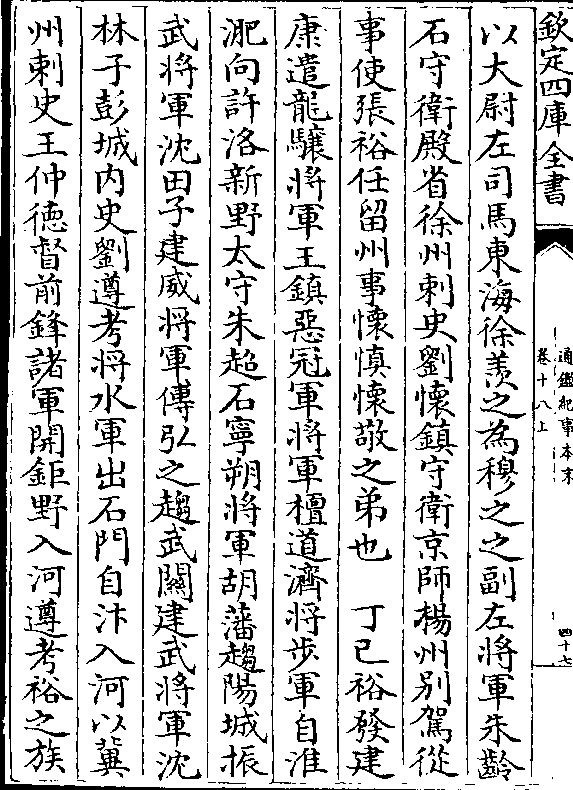 欽定四庫全書
通鑑紀事本末
卷十八上
四十七
以大尉左司馬東海徐羨之為穆之之副左將軍朱齡
石守衛殿省徐州刺史劉懷鎮守衛京師楊州別駕從
事使張裕任留州事懷慎懷敬之弟也　丁巳裕發建
康遣龍驤將軍王鎮惡冠軍將軍檀道濟將步軍自淮
淝向許洛新野太守朱超石寧朔將軍胡藩趨陽城振
武將軍沈田子建威將軍傅弘之趨武關建武將軍沈
林子彭城内史劉遵考將水軍出石門自汴入河以冀
州刺史王仲德督前鋒諸軍開鉅野入河遵考裕之族